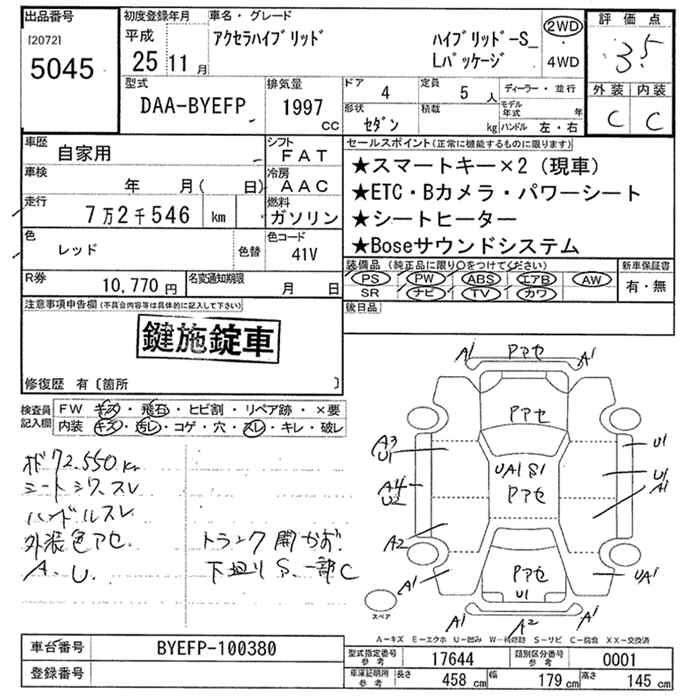 出品番号
[2072]
5045
初度登録年月
平成
25 11 月
車名・グレード
アクセラハイブリッド
ハイブリッド-S_
Lパッケージ
2WD
4WD
評価点
3.5
外装 内装
C C
型式
DAA-BYEFP
排気量
1997
cc
ドア
4
定員
5 人
ディーラー・並行
形状
セダン
積載
kg
モデル年式 年
ハンドル 左・右
車歴
自家用
シフト
FAT
車検
年 月( 日)
冷房
AAC
走行
7万2千546 km
燃料
ガソリン
色
レッド
色替
色コード
41V
R券
10,770 円
名変通知期限
月 日
セールスポイント(正常に機能するものに限ります)
★スマートキー×2(現車)
★ETC・Bカメラ・パワーシート
★シートヒーター
★Boseサウンドシステム
装備品(純正品に限り○をつけてください)
PS PW ABS エアB AW
SR ナビ TV カワ
新車保証書
有・無
後日品
注意事項申告欄(不具合内容等は具体的に記入して下さい)
鍵施錠車
修復歴 有〔箇所 〕
検査員記入欄
FW キズ・飛石・ヒビ割・リペア跡・×要
内装 キズ・汚レ・コゲ・穴・スレ・キレ・破レ
72.550km
シートシワ.スレ
ハンドルスレ
外装色アセ.
A. U.
トランク開
下廻りS.一部C
A1 アセ A1
アセ
A3
U1
U1
UA1 S1
アセ
A4
U2
U1
A1
A2
A1
アセ
U1
UA1
A1 A2 A1
スペア
A-キズ E-エクボ U-凹み W-補修跡 S-サビ C-腐食 XX-交換済
車台番号
BYEFP-100380
登録番号
型式指定番号 参考
17644
類別区分番号 参考
0001
車庫証明用 参考
長さ 458 cm
幅 179 cm
高さ 145 cm